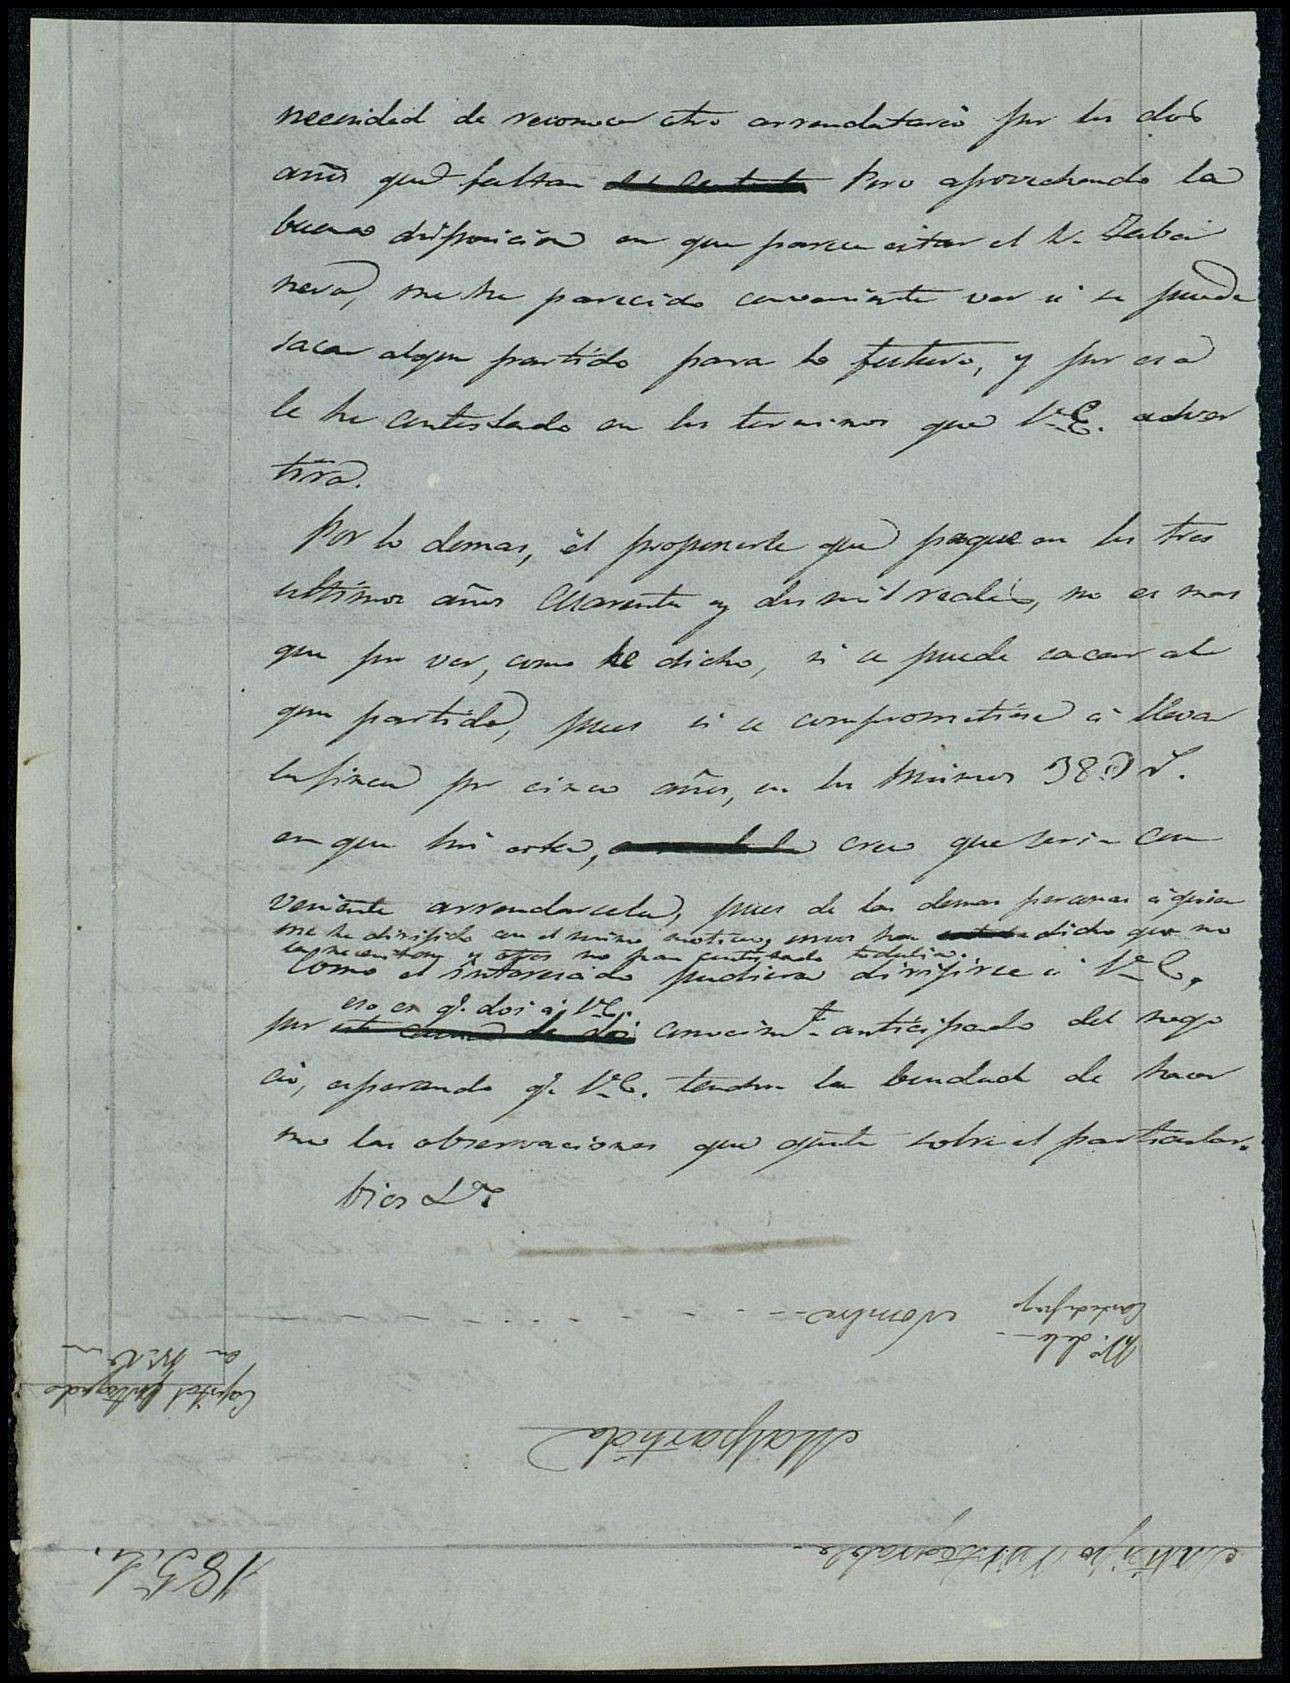 necesidad de reconocer otro arrendatario por los dos
años que faltan Pero aprovechando la
buena disposicion en que parece estar el Sr. Zaba
nera, me ha parecido conveniente ver si se puede
sacar algun partido para lo futuro, y por eso
le he contestado en los terminos que V.E. adver
tirá.
Por lo demas, el proponerle que pague en los tres
ultimos años cuarenta y dos mil reales, no es mas
que por ver, como he dicho, si se puede sacar al
gun partido, pues si se comprometiese á llevar
la finca por cinco años, en los mismos 38
en que hoi esta, creo que seria con
veniente arrendarsela, pues de las demas personas á quien
me he dirijido con el mismo motivo, unos han dicho que no
la necesitan y otros no han contestado todavia.
Como el interesado pudiera dirijirse á V.E.,
eso en q.e doi á V.E.
por conocim.to anticipado del nego
cio, esperando q.e V.E. tendra la bondad de hacer
me las observaciones que guste sobre el particular.
Dios &.a
Nombre
N.o de la
Carta de pago
Capital Entregado
en Rs. Vn
Malpartida
185